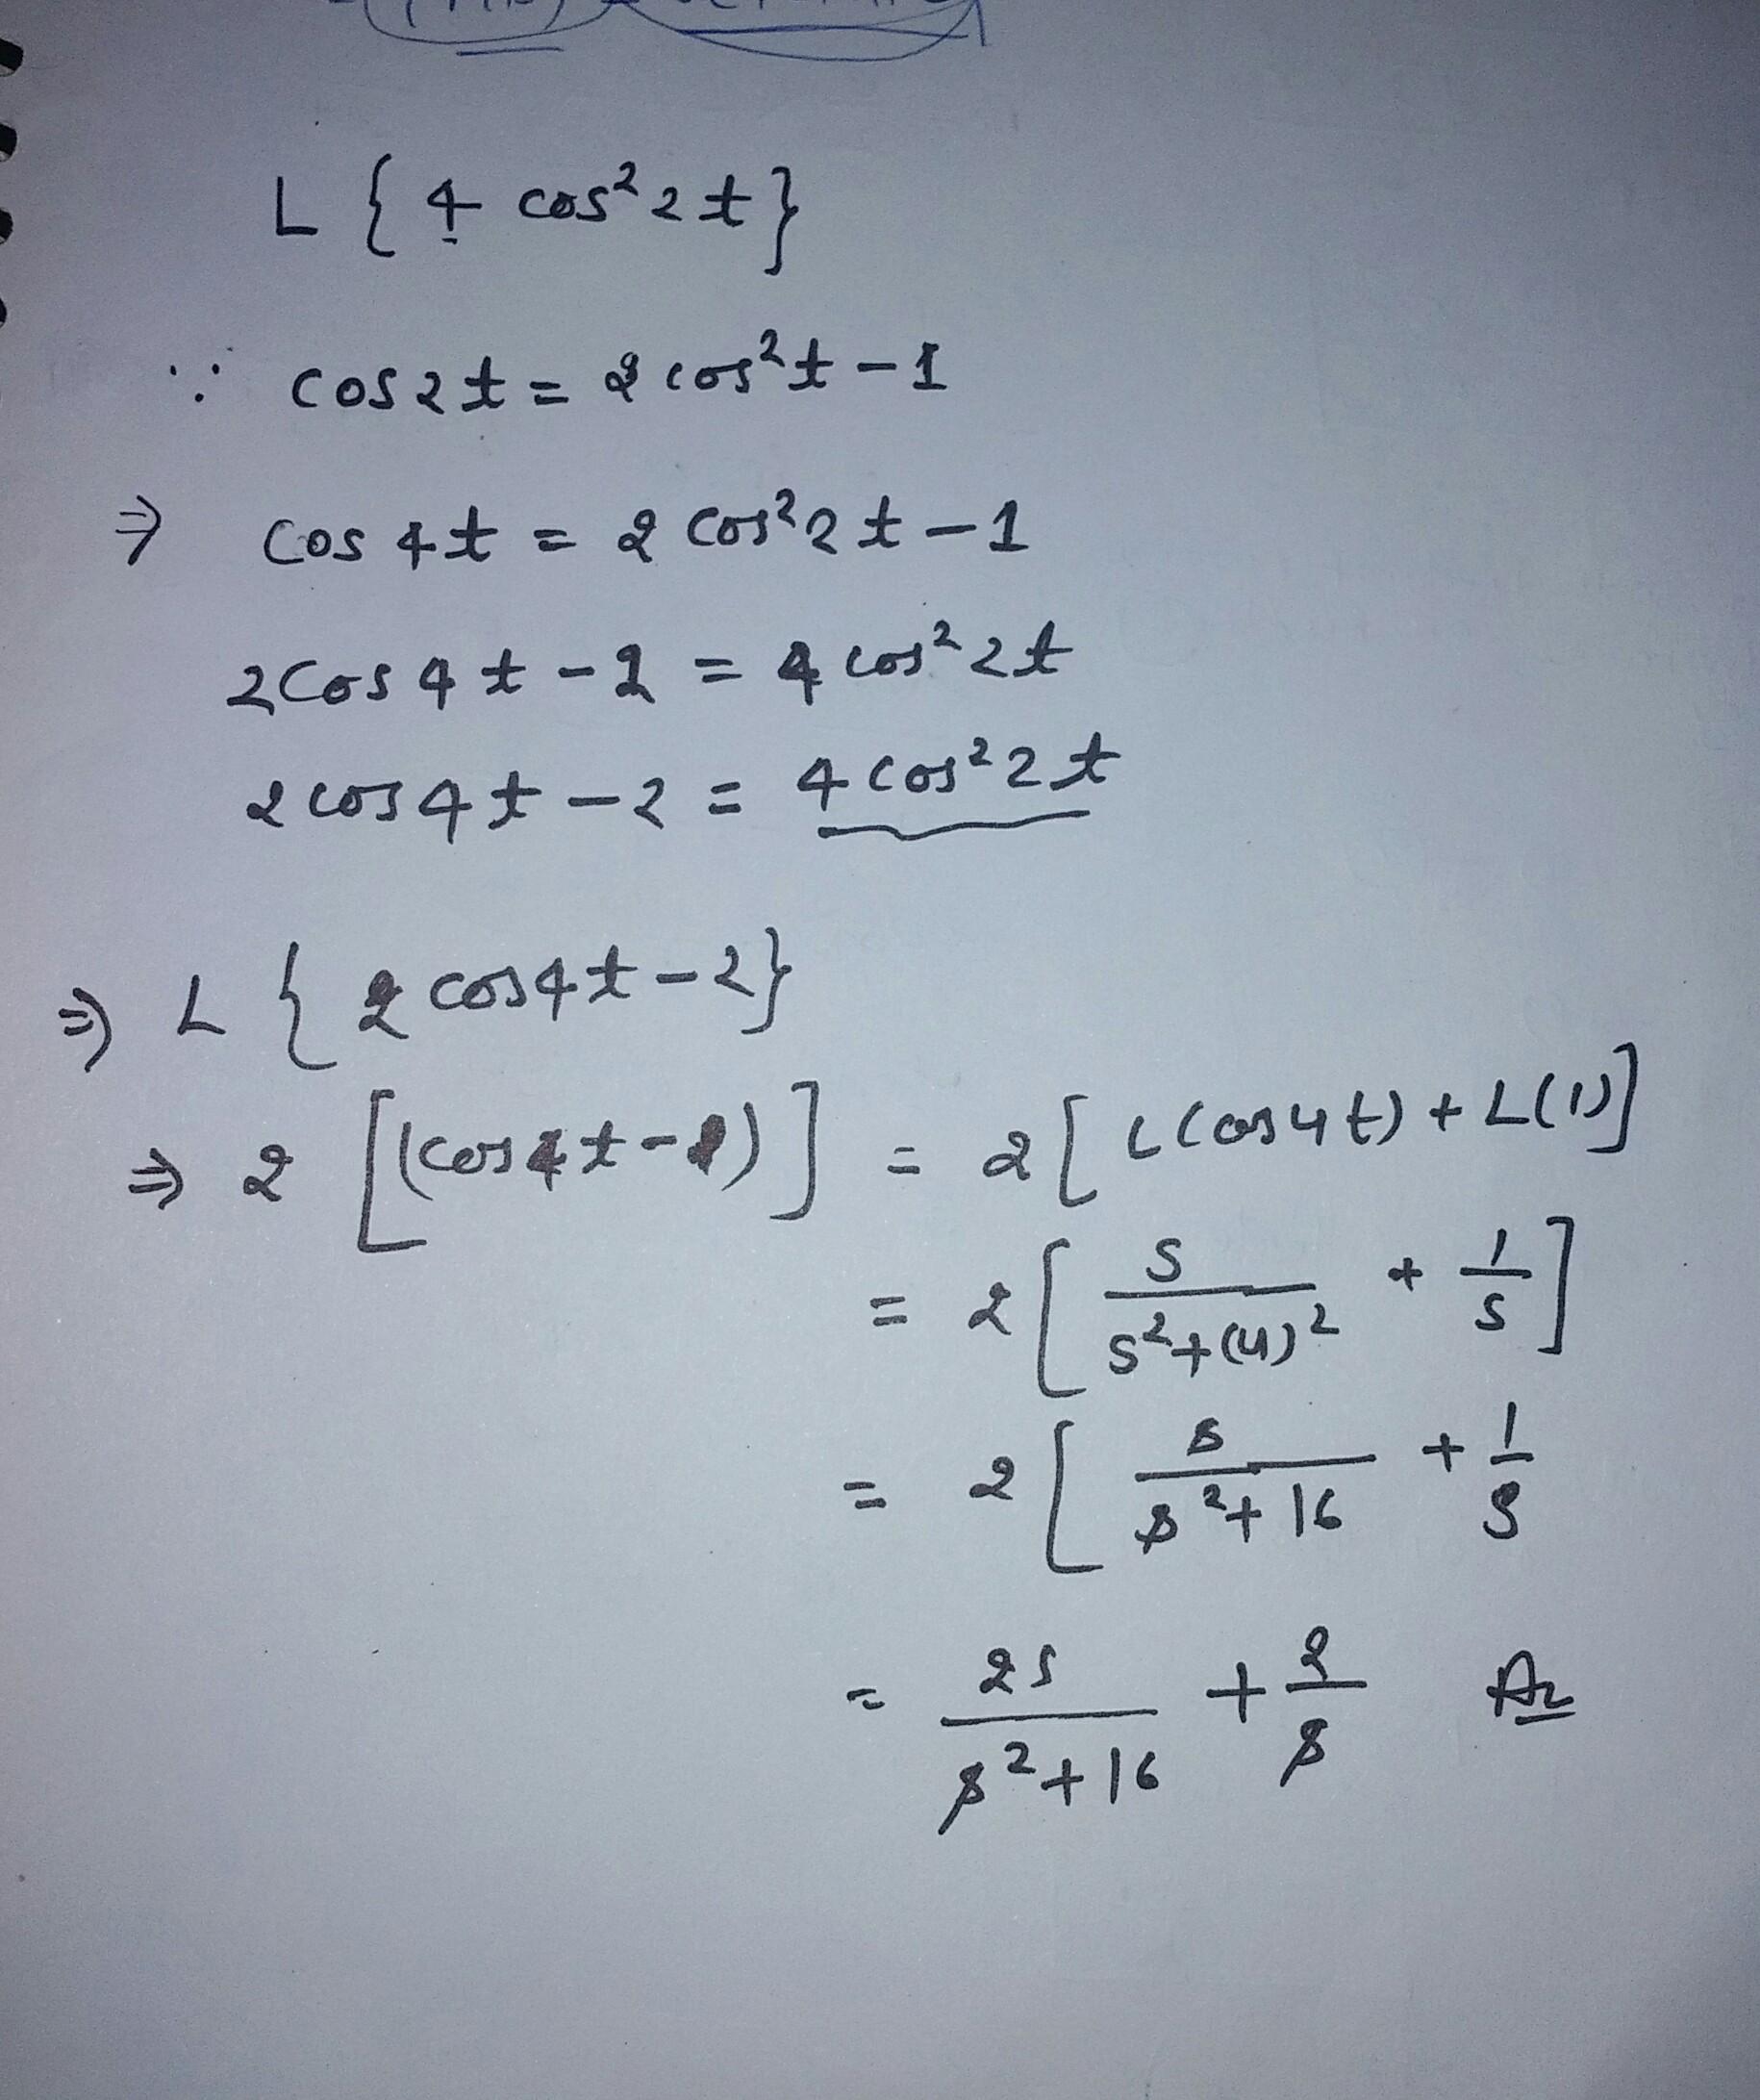 L { 4 cos² 2t }
∵ cos2t = 2cos²t − 1
⇒ cos 4t = 2 cos² 2t − 1
2cos 4t − 2 = 4 cos² 2t
2cos4t − 2 = 4cos² 2t
⇒ L { 2 cos4t − 2 }
⇒ 2 [(cos4t − 1)] = 2[ L(cos4t) + L(1)]
= 2[ s/(s²+(4)²) + 1/s ]
= 2[ s/(s²+16) + 1/s
= 2s/(s²+16) + 2/s Ar